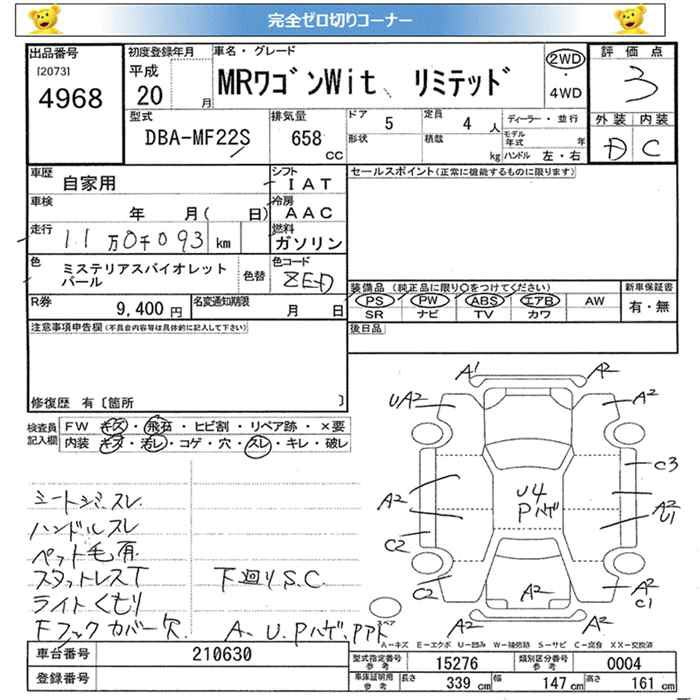 完全ゼロ切りコーナー
出品番号 初度登録年月 車名・グレード 評価点
[2073] 平成 MRワゴンWit リミテッド 2WD 3
4968 20 月 ・ 4WD
型式 排気量 ドア 5 定員 4 人 ディーラー・並行 外装 内装
DBA-MF22S 658 cc 形状 積載 kg モデル年式 年 D C
ハンドル 左・右
車歴 自家用 シフト IAT セールスポイント(正常に機能するものに限ります)
車検 年 月( 日) 冷房 AAC
走行 11万0千093 km 燃料 ガソリン
色 ミステリアスバイオレット 色替 色コード ZED
パール
装備品 (純正品に限り○をつけてください) 新車保証書
R券 9,400円 名変通知期限 月 日 PS PW ABS エアB AW 有・無
SR ナビ TV カワ
注意事項申告欄(不具合内容等は具体的に記入して下さい) 後日品
修復歴 有〔箇所 〕
検査員 FW キズ・飛石・ヒビ割・リペア跡・×要
記入欄 内装 キズ・汚レ・コゲ・穴・スレ・キレ・破レ
A1 A2
UA2 A2
C3
シートシミスレ A2 U4 A2
ハンドルスレ Pハゲ U1
ペット毛有 C2
スタットレスT 下廻りS.C. C2 A2 A2
ライトくもり C1
Fフックカバー欠 A-U.Pハゲ.Pアト A2 A2
A-キズ E-エクボ U-凹み W-補修跡 S-サビ C-腐食 XX-交換済
車台番号 210630 型式指定番号 参考 15276 類別区分番号 参考 0004
登録番号 車庫証明用 参考 長さ 339 cm 幅 147 cm 高さ 161 cm